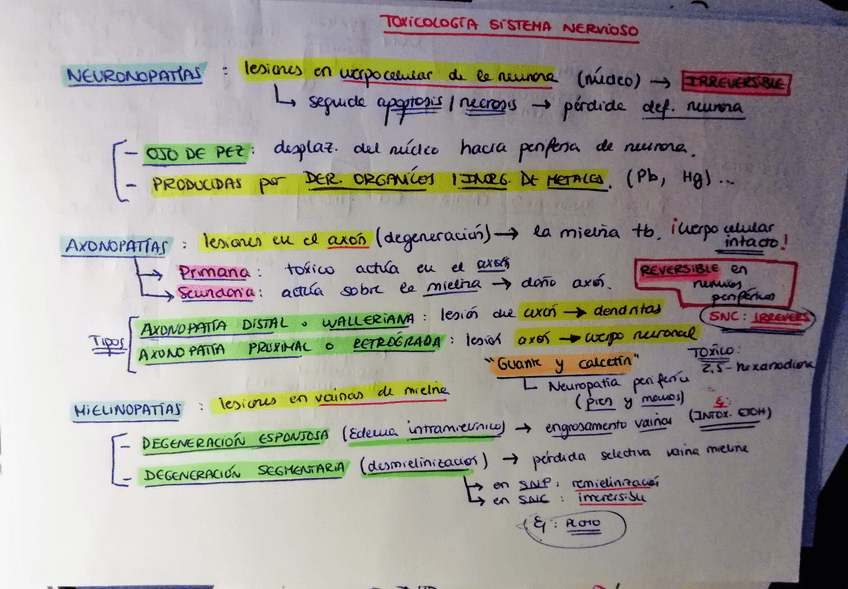 TOXICOLOGÍA SISTEMA NERVIOSO
NEURONOPATÍAS : lesiones en cuerpo celular de la neurona (núcleo) → IRREVERSIBLE
↳ seguida apoptosis / necrosis → pérdida def. neurona
- OJO DE PEZ : desplaz. del núcleo hacia periferia de neurona.
- PRODUCIDAS por DER. ORGANICOS / INORG. DE METALES. (Pb, Hg) ...
AXONOPATÍAS : lesiones en el axón (degeneración) → la mielina tb. ¡cuerpo celular intacto!
→ Primaria : tóxico actúa en el axón
→ Secundaria : actúa sobre la mielina → daño axón.
REVERSIBLE en
nervios
periféricos
SNC : IRREVERS
Tipos
AXONOPATÍA DISTAL o WALLERIANA : lesión de axón → dendritas
AXONOPATÍA PROXIMAL o RETRÓGRADA : lesión axón → cuerpo neuronal
"Guante y calcetín"
TÓXICO:
2,5-hexanodiona
↳ Neuropatía periferia
(pies y manos)
MIELINOPATÍAS : lesiones en vainas de mielina
- DEGENERACIÓN ESPONJOSA (Edema intramielínico) → engrosamiento vainas (INTOX. ETOH)
- DEGENERACIÓN SEGMENTARIA (desmielinización) → pérdida selectiva vaina mielina
→ en SNP : remielinización
→ en SNC : irreversible
Ej : PLOMO